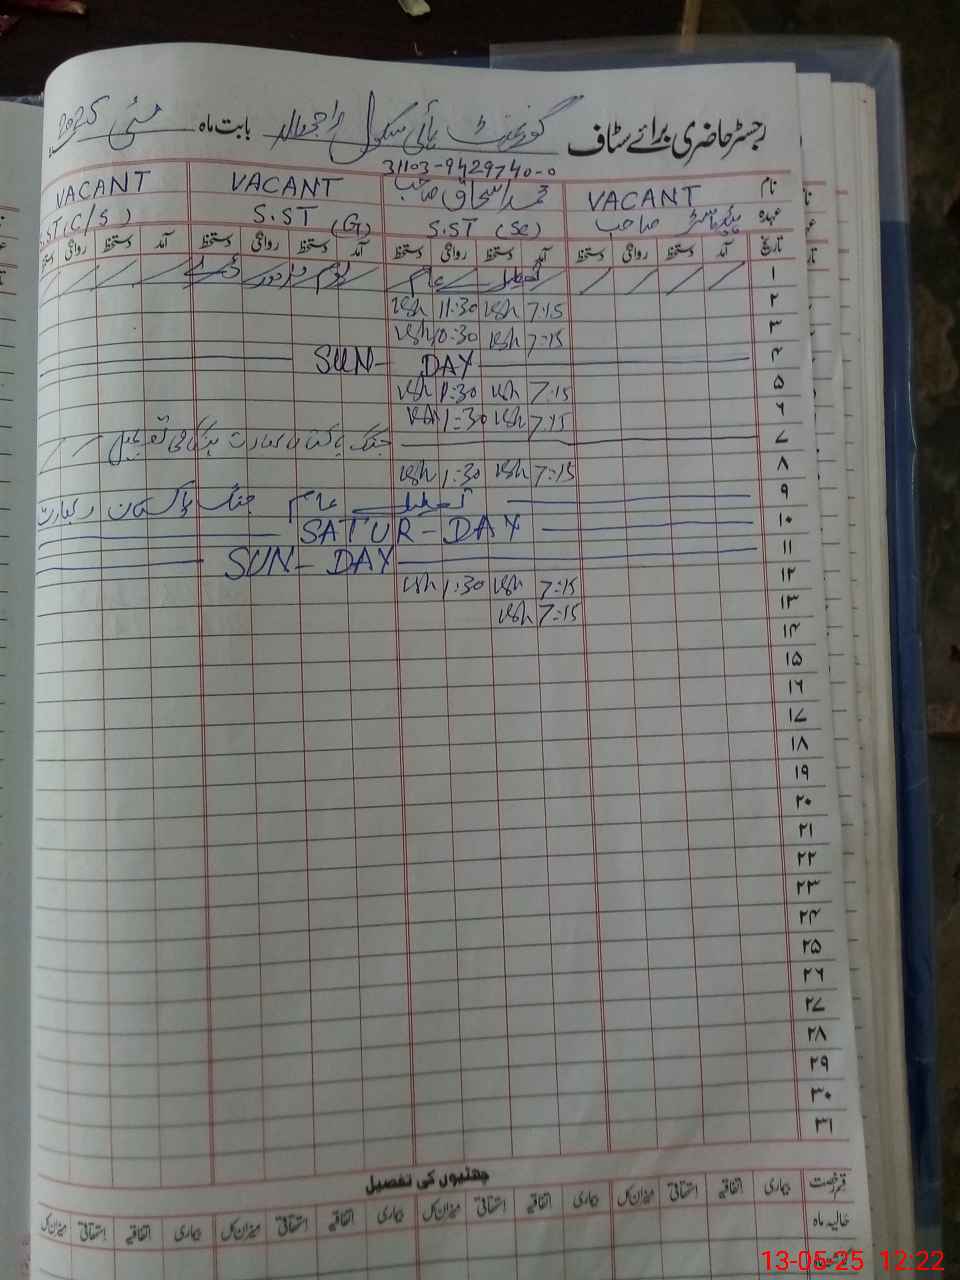 رجسٹر حاضری برائے سٹاف گورنمنٹ ہائی سکول بابت ماہ مئی 2025
31103-9429740-0
نام VACANT محمد اسحاق صاحب VACANT VACANT
عہدہ ہیڈ ماسٹر صاحب S.ST (Sc) S.ST (G) S.ST (C/S)
تاریخ آمد دستخط روانگی دستخط آمد دستخط روانگی دستخط آمد دستخط روانگی دستخط آمد دستخط روانگی دستخط
۱ تعطیل عام یوم مزدور ڈے
۲ 7:15 11:30
۳ 7:15 10:30
۴ SUN-DAY
۵ 7:15 1:30
۶ 7:15 1:30
۷ جنگ پاکستان بھارت ہنگامی تعطیل
۸ 7:15 1:30
۹ تعطیل عام جنگ پاکستان و بھارت
۱۰ SATUR-DAY
۱۱ SUN-DAY
۱۲ 7:15 1:30
۱۳ 7:15
۱۴
۱۵
۱۶
۱۷
۱۸
۱۹
۲۰
۲۱
۲۲
۲۳
۲۴
۲۵
۲۶
۲۷
۲۸
۲۹
۳۰
۳۱
چھٹیوں کی تفصیل
قسم رخصت بیماری اتفاقیہ استحقاقی میزان کل بیماری اتفاقیہ استحقاقی میزان کل بیماری اتفاقیہ استحقاقی میزان کل بیماری اتفاقیہ استحقاقی میزان کل
حالیہ ماہ
13-05-25 12:22